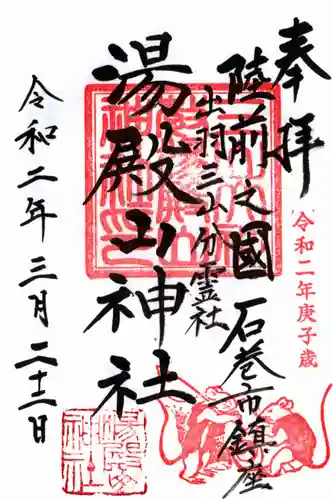 奉拝
陸前之國 石巻市鎮座
出羽三山分霊社
湯殿山神社
令和二年三月二十二日
令和二年庚子歳